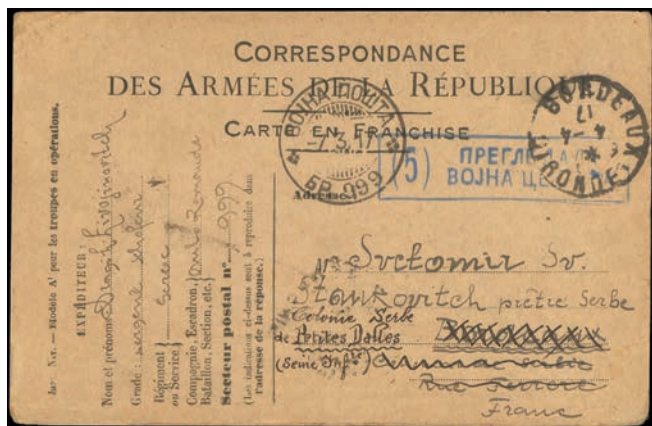 CORRESPONDANCE
DES ARMÉES DE LA RÉPUBLIQUE
CARTE EN FRANCHISE
ВОЈНА ПОШТА
-7.3.17
БР. 999
BORDEAUX
17
4 -4
GIRONDE
(5) ПРЕГЛЕДАЛА
ВОЈНА
Adresse
Mr Svetomir Sv.
Stankovitch piètre Serbe
Colonie Serbe
de Petites Dalles
(Seine Infre)
Rue
Franc
Nat. — Modèle A1 pour les troupes en opérations.
EXPÉDITEUR:
Nom et prénoms
Grade:
Régiment
ou Service } Serec
Compagnie, Escadron,
Bataillon, Section, etc.}
Secteur postal n° 999
(Les indications ci-dessus sont à reproduire dans
l'adresse de la réponse.)